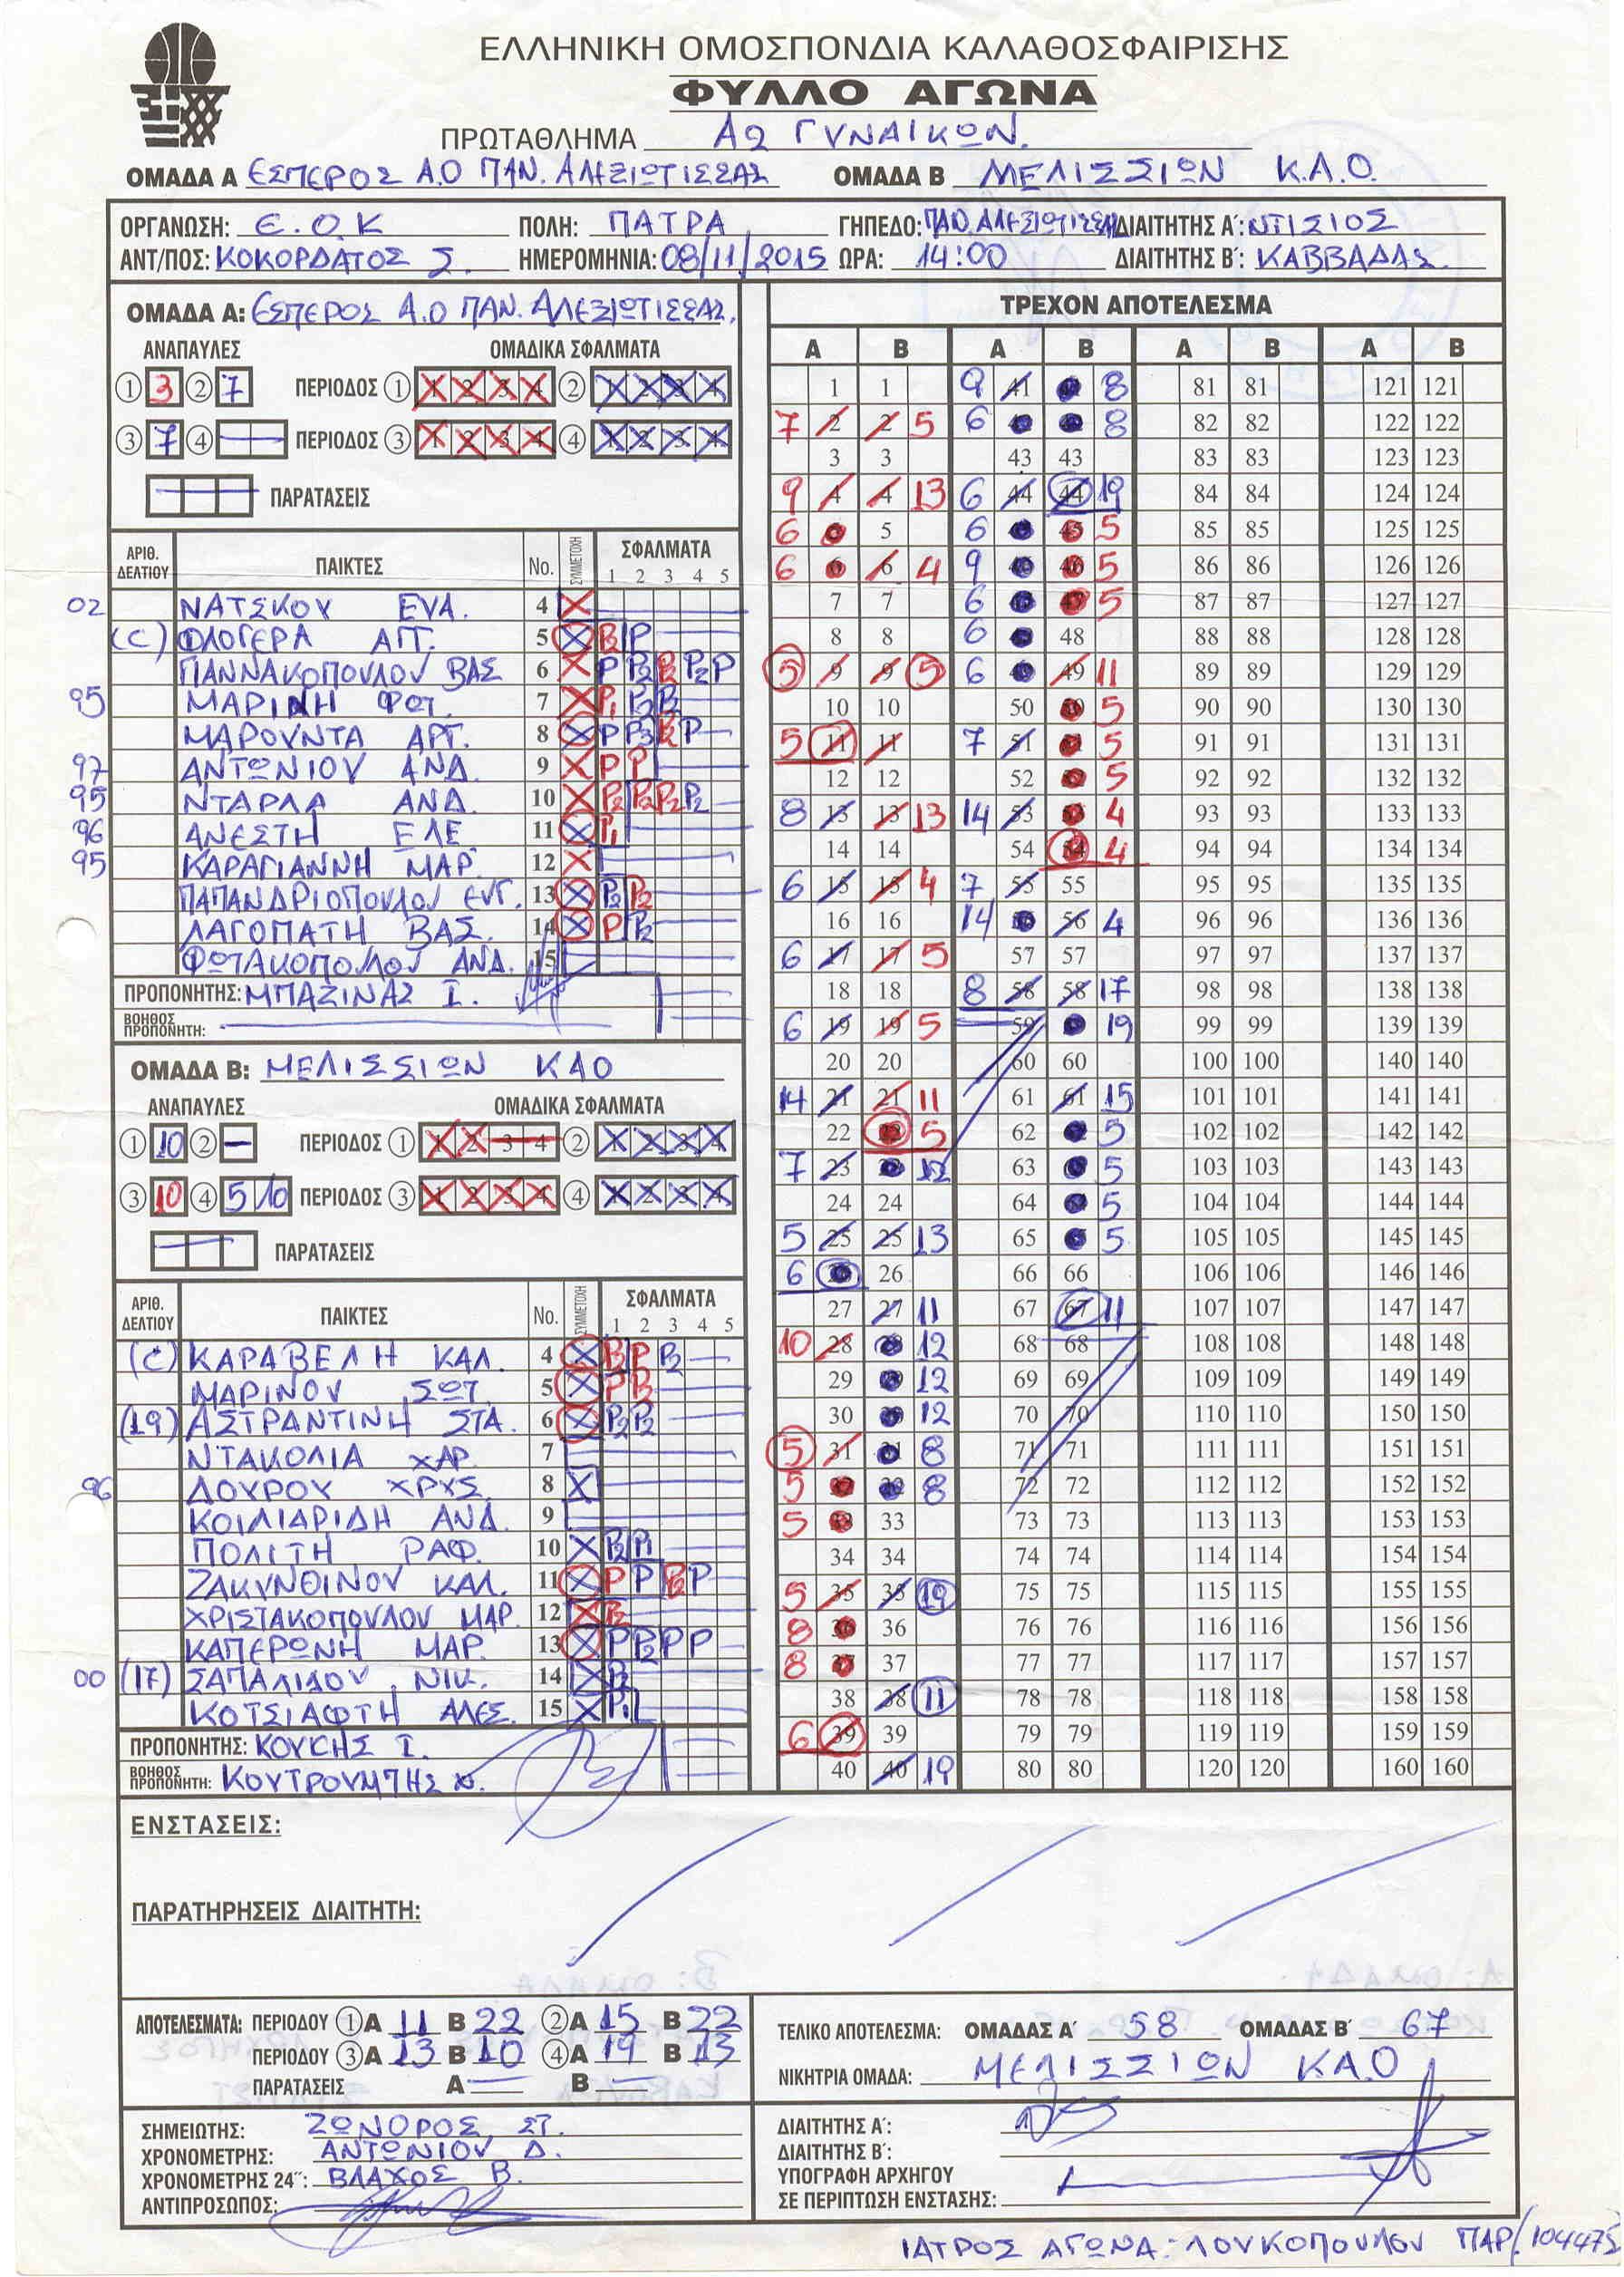 ΕΛΛΗΝΙΚΗ ΟΜΟΣΠΟΝΔΙΑ ΚΑΛΑΘΟΣΦΑΙΡΙΣΗΣ
ΦΥΛΛΟ ΑΓΩΝΑ
ΠΡΩΤΑΘΛΗΜΑ Α2 ΓΥΝΑΙΚΩΝ.
ΟΜΑΔΑ Α ΕΣΠΕΡΟΣ Α.Ο ΠΑΝ. ΑΛΕΞΙΩΤΙΣΣΑΣ ΟΜΑΔΑ Β ΜΕΛΙΣΣΙΩΝ Κ.Α.Ο.
ΟΡΓΑΝΩΣΗ: Ε.Ο.Κ ΠΟΛΗ: ΠΑΤΡΑ ΓΗΠΕΔΟ: ΠΑΝ. ΑΛΕΞΙΩΤΙΣΣΑΣ ΔΙΑΙΤΗΤΗΣ Α΄: ΝΤΙΣΙΟΣ
ΑΝΤ/ΠΟΣ: ΚΟΚΟΡΔΑΤΟΣ Σ. ΗΜΕΡΟΜΗΝΙΑ: 08/11/2015 ΩΡΑ: 14:00 ΔΙΑΙΤΗΤΗΣ Β΄: ΚΑΒΒΑΔΑΣ
ΟΜΑΔΑ Α: ΕΣΠΕΡΟΣ Α.Ο ΠΑΝ. ΑΛΕΞΙΩΤΙΣΣΑΣ.
ΑΝΑΠΑΥΛΕΣ ΟΜΑΔΙΚΑ ΣΦΑΛΜΑΤΑ
① 3 ② 7 ΠΕΡΙΟΔΟΣ ① 1 2 3 4 ② 1 2 3 4
③ 7 ④ ΠΕΡΙΟΔΟΣ ③ 1 2 3 4 ④ 1 2 3 4
ΠΑΡΑΤΑΣΕΙΣ
ΑΡΙΘ. ΔΕΛΤΙΟΥ ΠΑΙΚΤΕΣ No. ΣΥΜΜΕΤΟΧΗ ΣΦΑΛΜΑΤΑ
1 2 3 4 5
02 ΝΑΤΣΚΟΥ ΕΥΑ. 4 X
(C) ΦΛΟΓΕΡΑ ΑΠ. 5 X
ΓΙΑΝΝΑΚΟΠΟΥΛΟΥ ΒΑΣ 6 X P P2 P2 P2 P
95 ΜΑΡΙΝΗ ΦΩΤ. 7 X P1 P2
ΜΑΡΟΥΝΤΑ ΑΡΓ. 8 X P
97 ΑΝΤΩΝΙΟΥ ΑΝΔ. 9 X P P
95 ΝΤΑΡΛΑ ΑΝΔ. 10 X P2 P2 P2 P2
96 ΑΝΕΣΤΗ ΕΛΕ 11 X P1
95 ΚΑΡΑΓΙΑΝΝΗ ΜΑΡ. 12 X
ΠΑΠΑΝΔΡΙΟΠΟΥΛΟΥ ΕΥΓ. 13 X P2 P2
ΛΑΓΟΠΑΤΗ ΒΑΣ. 14 X P P2
ΦΩΤΑΚΟΠΟΥΛΟΥ ΑΝΔ. 15
ΠΡΟΠΟΝΗΤΗΣ: ΜΠΑΖΙΝΑΣ Ι.
ΒΟΗΘΟΣ ΠΡΟΠΟΝΗΤΗ:
ΟΜΑΔΑ Β: ΜΕΛΙΣΣΙΩΝ ΚΑΟ
ΑΝΑΠΑΥΛΕΣ ΟΜΑΔΙΚΑ ΣΦΑΛΜΑΤΑ
① 10 ② – ΠΕΡΙΟΔΟΣ ① 1 2 3 4 ② 1 2 3 4
③ 10 ④ 5 10 ΠΕΡΙΟΔΟΣ ③ 1 2 3 4 ④ 1 2 3 4
ΠΑΡΑΤΑΣΕΙΣ
ΑΡΙΘ. ΔΕΛΤΙΟΥ ΠΑΙΚΤΕΣ No. ΣΥΜΜΕΤΟΧΗ ΣΦΑΛΜΑΤΑ
1 2 3 4 5
(C) ΚΑΡΑΒΕΛΗ ΚΑΛ. 4 X P P2
ΜΑΡΙΝΟΥ ΣΩΤ. 5 X P P2
(19) ΑΣΤΡΑΝΤΙΝΗ ΣΤΑ. 6 X P2 P2
ΝΤΑΚΟΛΙΑ ΧΑΡ. 7
96 ΔΟΥΡΟΥ ΧΡΥΣ. 8 X
ΚΟΙΛΙΑΡΙΔΗ ΑΝΔ. 9
ΠΟΛΙΤΗ ΡΑΦ. 10 X P2 P1
ΖΑΚΥΝΘΙΝΟΥ ΚΑΛ. 11 X P P P2 P
ΧΡΙΣΤΑΚΟΠΟΥΛΟΥ ΜΑΡ. 12 X P2
ΚΑΠΕΡΩΝΗ ΜΑΡ. 13 X P P2 P P
00 (17) ΣΑΠΑΛΙΔΟΥ ΝΙΚ. 14 X P2
ΚΟΤΣΙΑΦΤΗ ΑΛΕΞ. 15 X P1
ΠΡΟΠΟΝΗΤΗΣ: ΚΟΥΚΗΣ Ι.
ΒΟΗΘΟΣ ΠΡΟΠΟΝΗΤΗ: ΚΟΥΤΡΟΥΜΠΗΣ Χ.
ΤΡΕΧΟΝ ΑΠΟΤΕΛΕΣΜΑ
Α Β Α Β Α Β Α Β
1 1 9 41 8 81 81 121 121
7 2 2 5 6 8 82 82 122 122
3 3 43 43 83 83 123 123
9 4 4 13 6 44 44 19 84 84 124 124
6 5 6 5 85 85 125 125
6 6 4 9 5 86 86 126 126
7 7 6 5 87 87 127 127
8 8 6 48 88 88 128 128
5 9 9 5 6 49 11 89 89 129 129
10 10 50 5 90 90 130 130
5 11 11 7 51 5 91 91 131 131
12 12 52 5 92 92 132 132
8 13 13 13 14 53 4 93 93 133 133
14 14 54 4 94 94 134 134
6 15 15 4 7 55 55 95 95 135 135
16 16 14 56 4 96 96 136 136
6 17 17 5 57 57 97 97 137 137
18 18 8 58 58 17 98 98 138 138
6 19 19 5 59 19 99 99 139 139
20 20 60 60 100 100 140 140
14 21 21 11 61 61 15 101 101 141 141
22 5 62 5 102 102 142 142
7 23 12 63 5 103 103 143 143
24 24 64 5 104 104 144 144
5 25 25 13 65 5 105 105 145 145
6 26 66 66 106 106 146 146
27 27 11 67 67 11 107 107 147 147
10 28 12 68 68 108 108 148 148
29 12 69 69 109 109 149 149
30 12 70 70 110 110 150 150
5 31 8 71 71 111 111 151 151
5 8 72 72 112 112 152 152
5 33 73 73 113 113 153 153
34 34 74 74 114 114 154 154
5 35 35 19 75 75 115 115 155 155
8 36 76 76 116 116 156 156
8 37 77 77 117 117 157 157
38 38 11 78 78 118 118 158 158
6 39 39 79 79 119 119 159 159
40 40 19 80 80 120 120 160 160
ΕΝΣΤΑΣΕΙΣ:
ΠΑΡΑΤΗΡΗΣΕΙΣ ΔΙΑΙΤΗΤΗ:
ΑΠΟΤΕΛΕΣΜΑΤΑ: ΠΕΡΙΟΔΟΥ ① Α 11 Β 22 ② Α 15 Β 22
ΠΕΡΙΟΔΟΥ ③ Α 13 Β 10 ④ Α 19 Β 13
ΠΑΡΑΤΑΣΕΙΣ Α Β
ΤΕΛΙΚΟ ΑΠΟΤΕΛΕΣΜΑ: ΟΜΑΔΑΣ Α΄ 58 ΟΜΑΔΑΣ Β΄ 67
ΝΙΚΗΤΡΙΑ ΟΜΑΔΑ: ΜΕΛΙΣΣΙΩΝ ΚΑΟ
ΣΗΜΕΙΩΤΗΣ: ΖΩΝΟΡΟΣ ΣΤ.
ΧΡΟΝΟΜΕΤΡΗΣ: ΑΝΤΩΝΙΟΥ Δ.
ΧΡΟΝΟΜΕΤΡΗΣ 24΄΄: ΒΛΑΧΟΣ Β.
ΑΝΤΙΠΡΟΣΩΠΟΣ:
ΔΙΑΙΤΗΤΗΣ Α΄:
ΔΙΑΙΤΗΤΗΣ Β΄:
ΥΠΟΓΡΑΦΗ ΑΡΧΗΓΟΥ
ΣΕ ΠΕΡΙΠΤΩΣΗ ΕΝΣΤΑΣΗΣ:
ΙΑΤΡΟΣ ΑΓΩΝΑ: ΛΟΥΚΟΠΟΥΛΟΥ ΠΑΡ. (104475